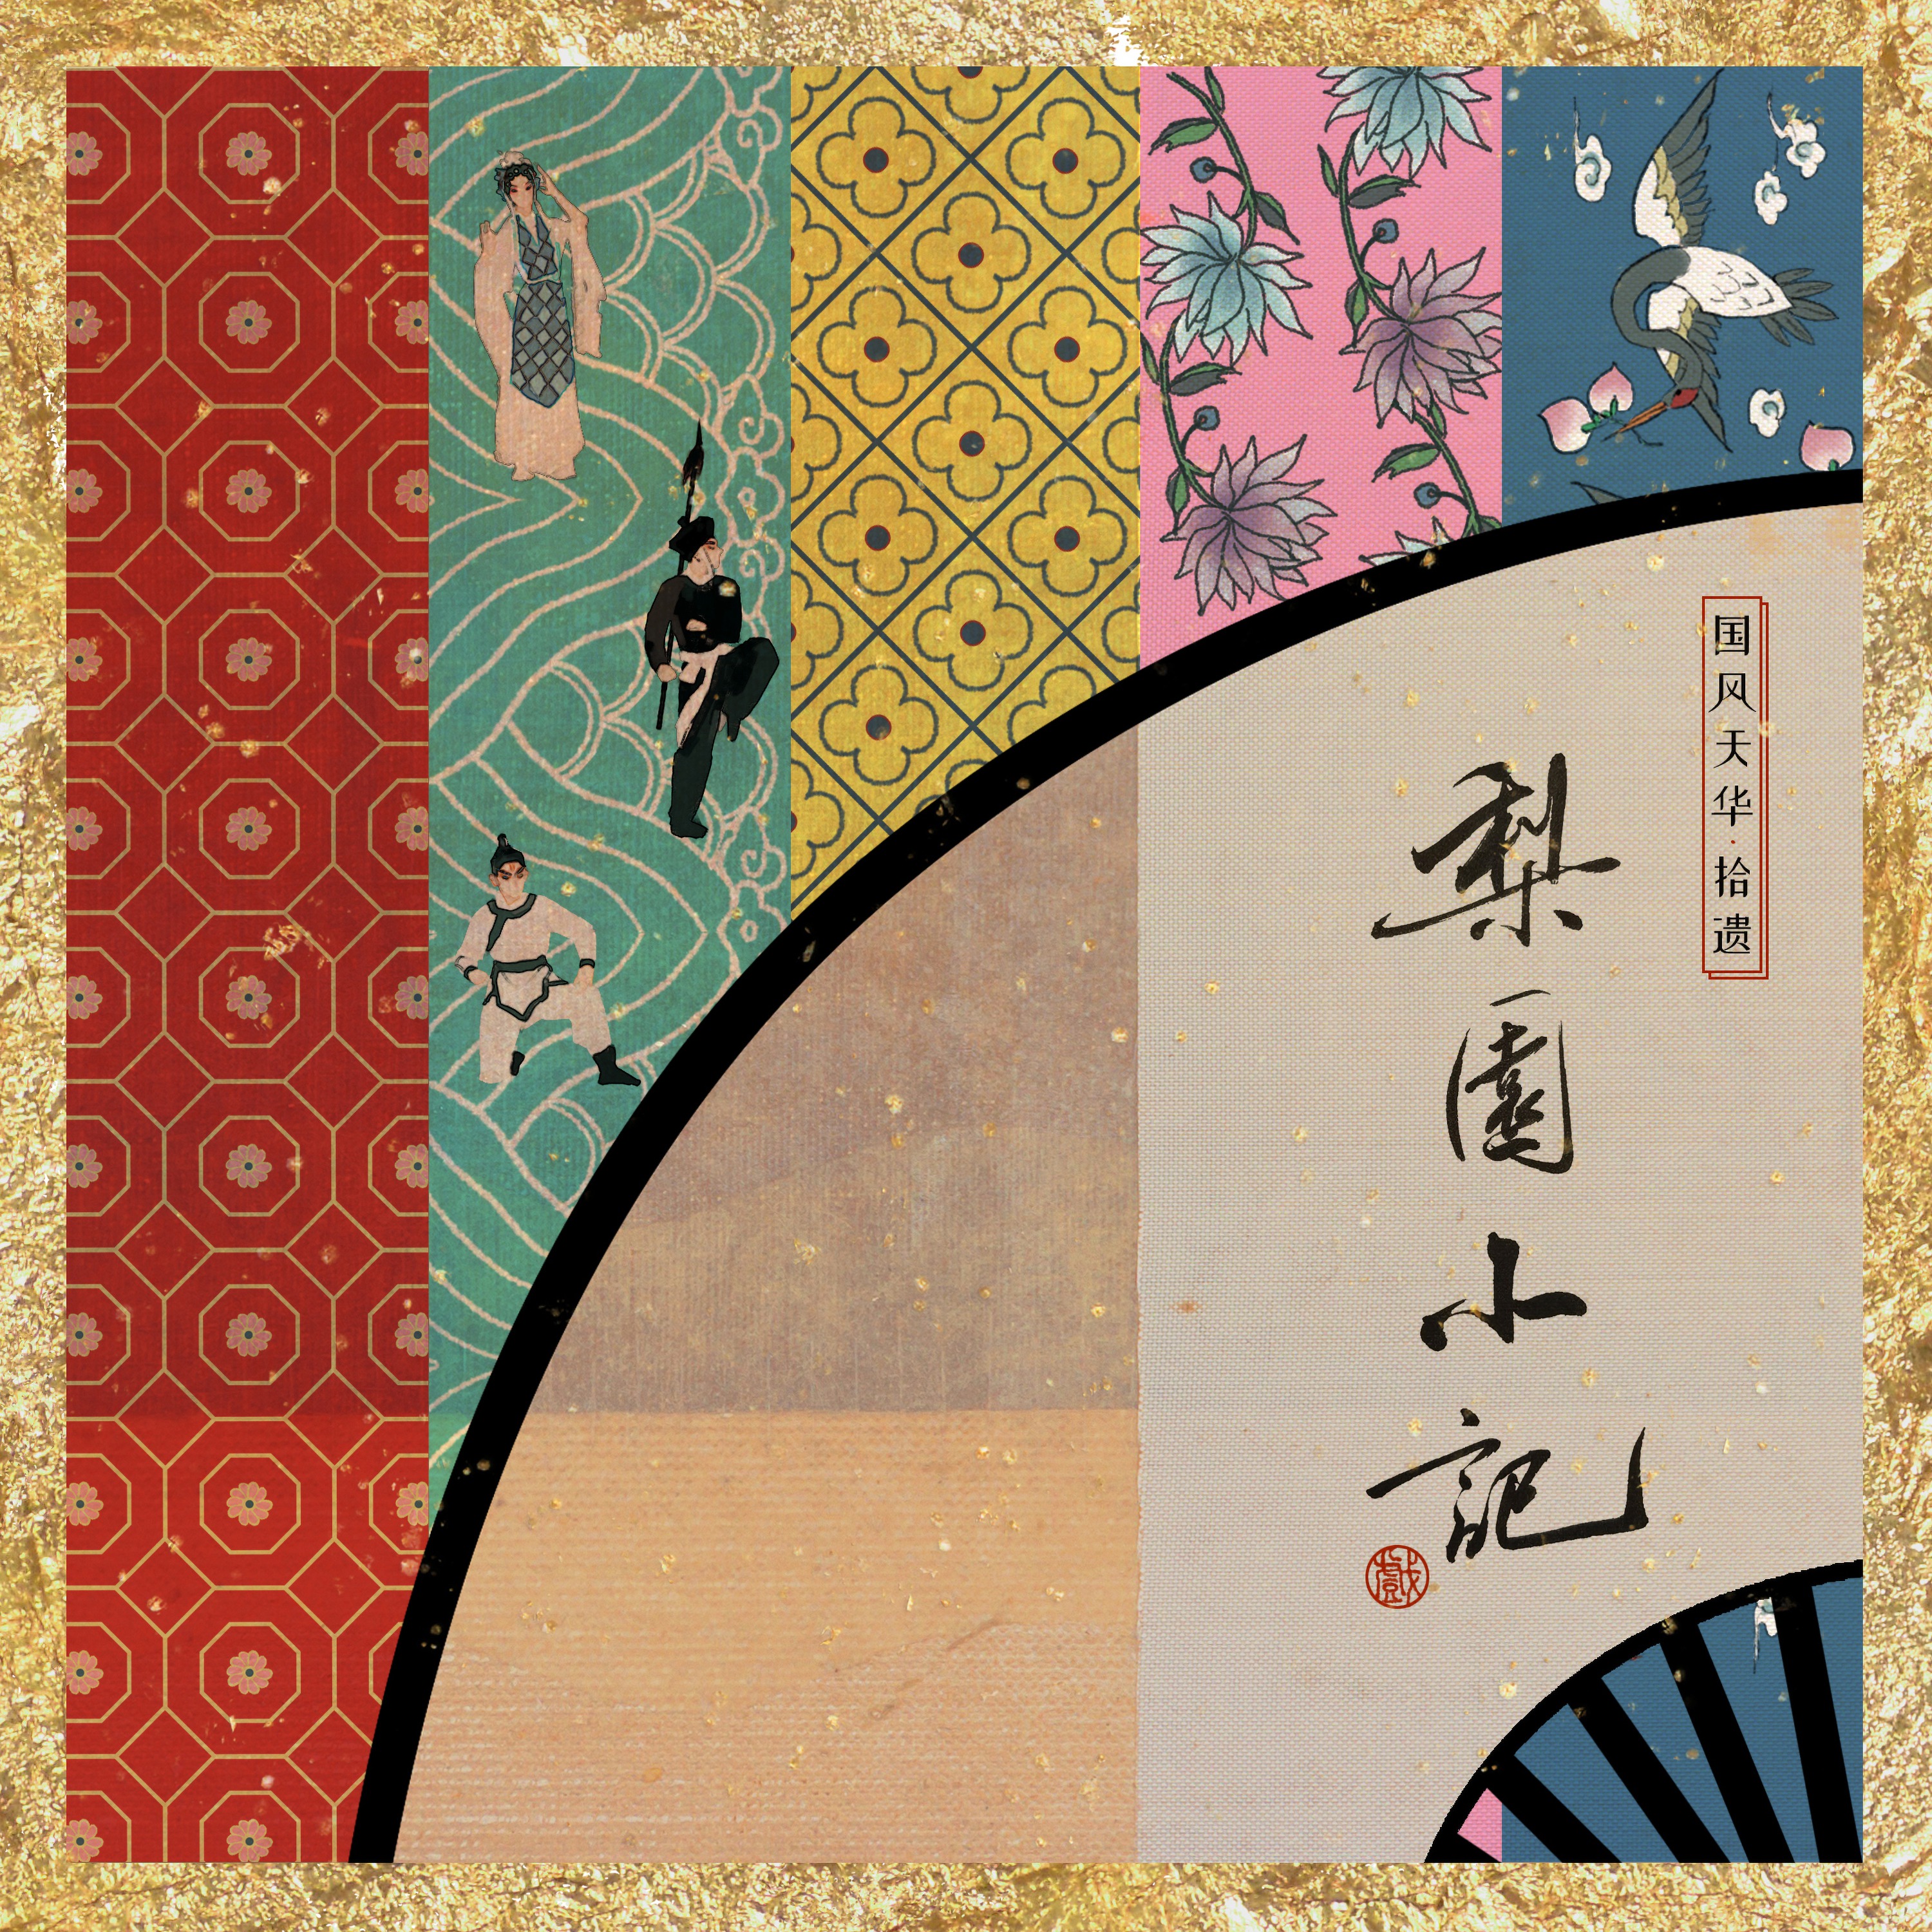 国风天华·拾遗
梨園小記
戲